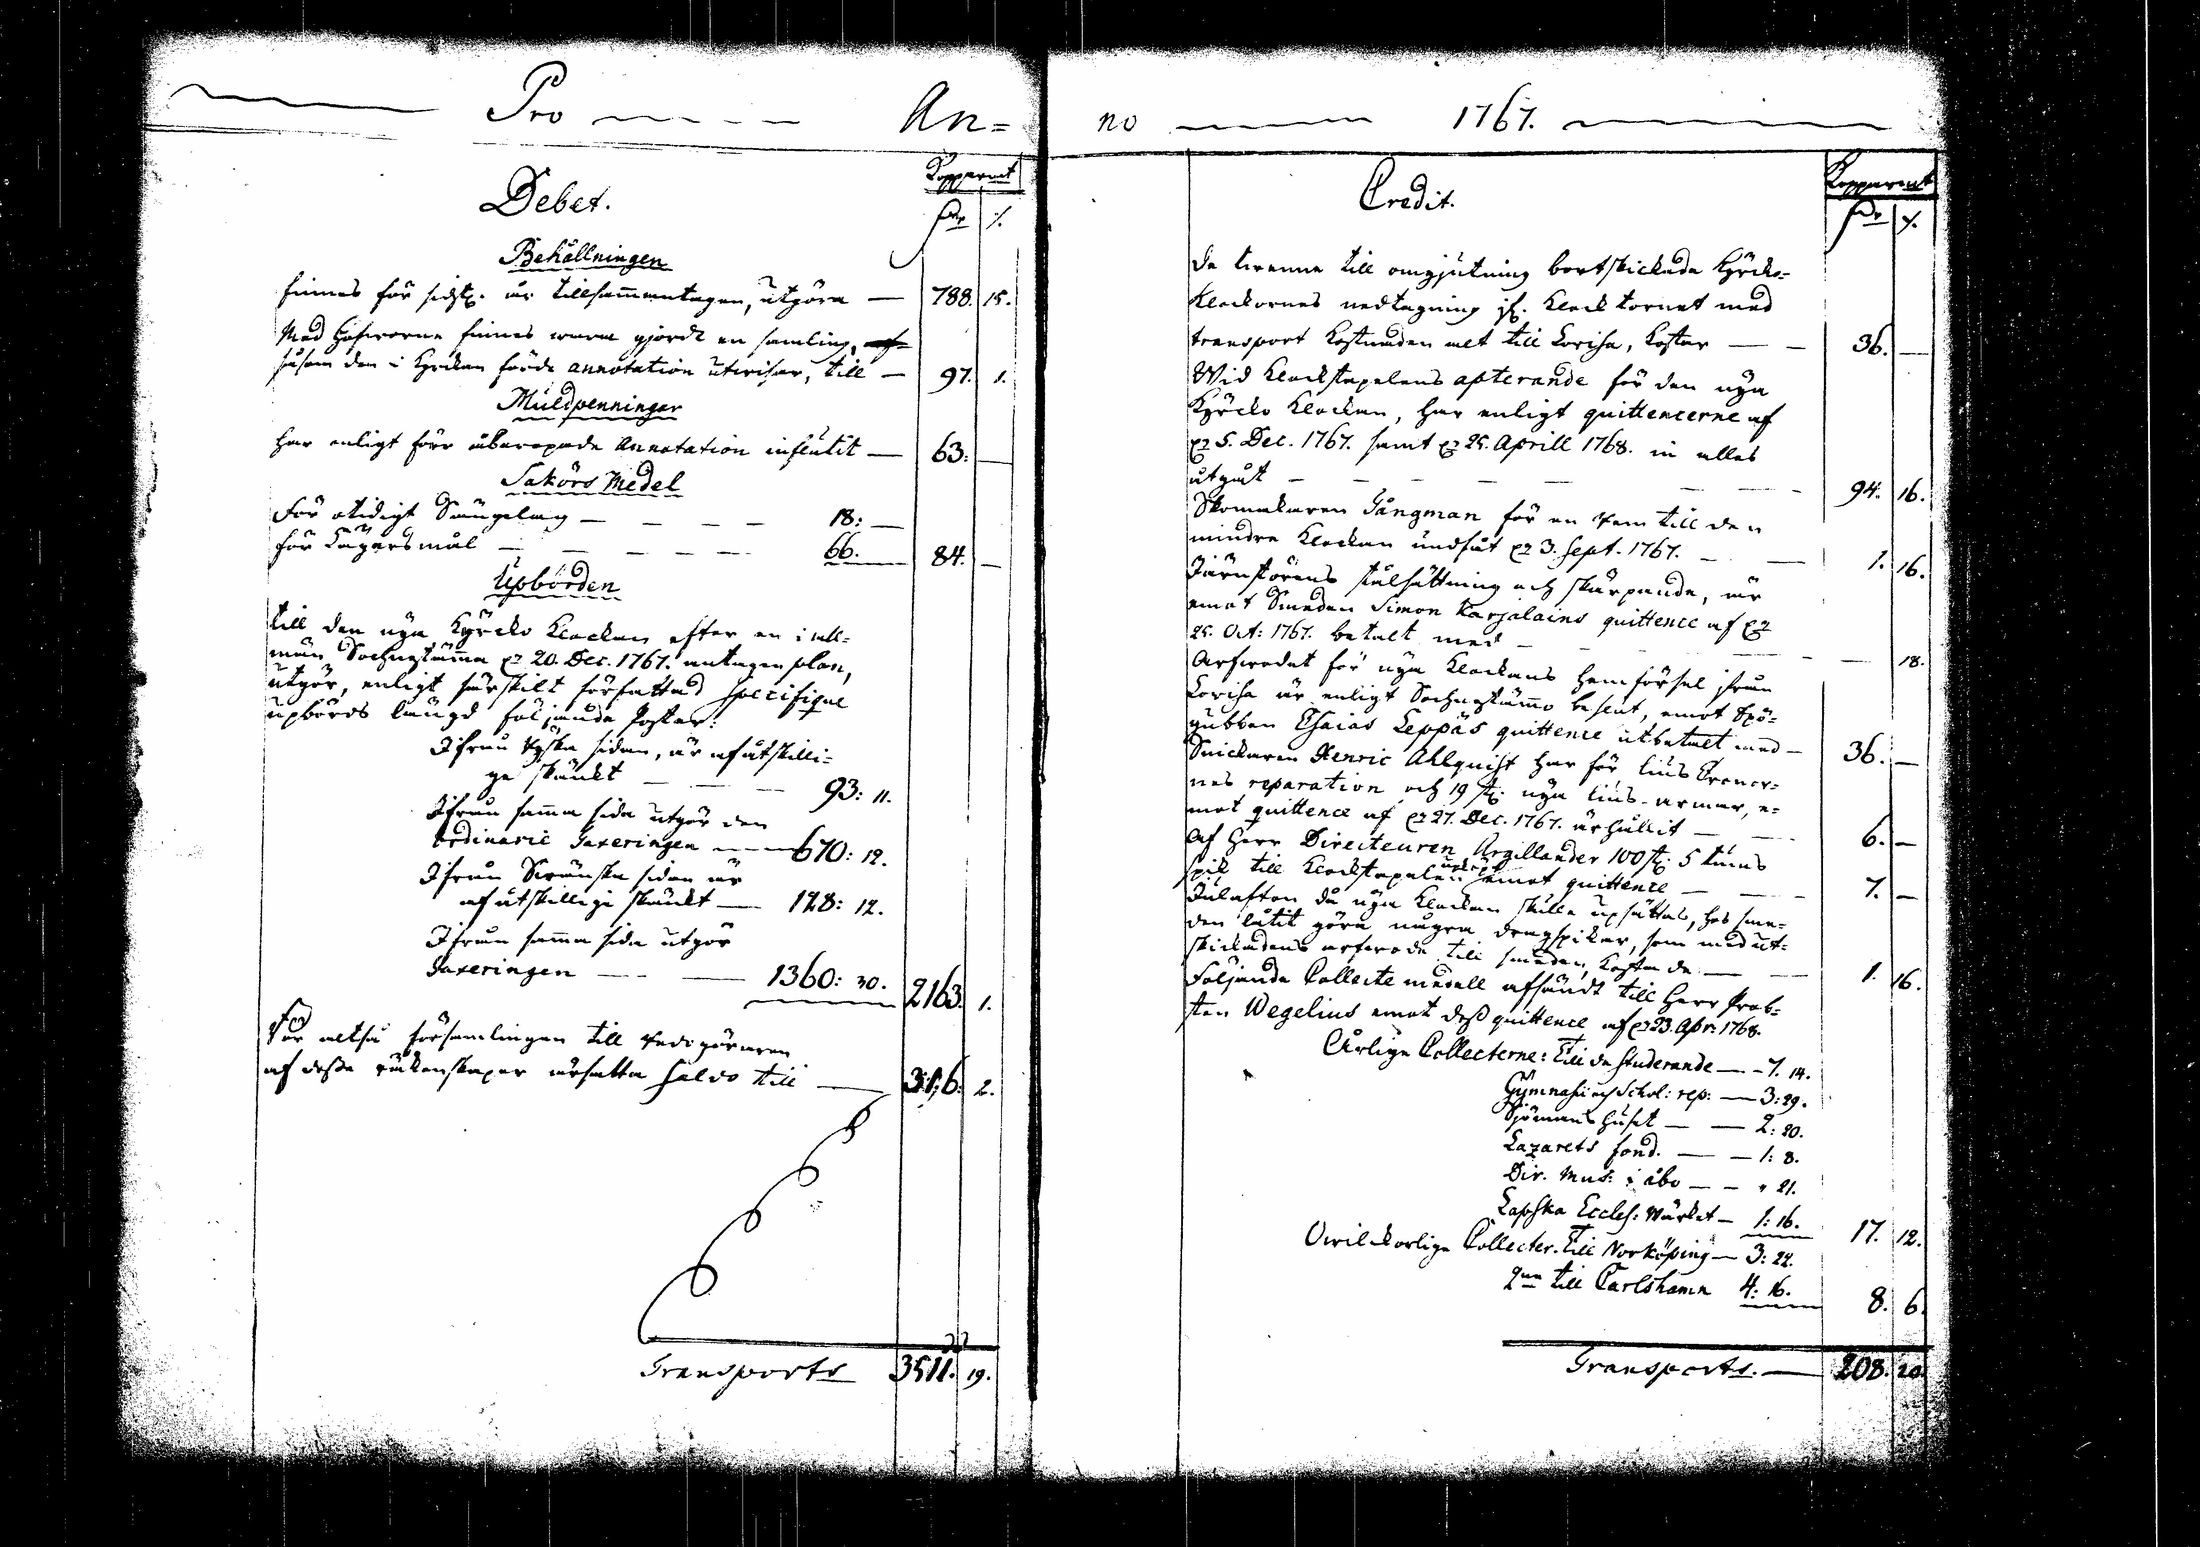 Pro An=
Debet.
Kopparmt
Dlr /.
Behållningen
finnes för sidstl. år tillsammantagen, utgöra — 788. 15.
Med Håfvorna finnes wara gjordt en samling,
såsom den i Kyrckan förde annotation utwisar, till — 97. 1.
Muldpenningar
har enligt förr åberopade Annotation influtit — 63: —
Sakörs Medel
För otidigt Sängelag — — — — 18: —
för Lägersmål — — — — — 66. — 84. —
Upbörden
till den nya Kyrcko Klockan efter en i all=
män Sochnestämma d. 20. Dec. 1767. antagen plan,
utgör, enligt särskilt författad specifique
upbörds längd följande Poster:
Ifrån Ryska sidan, är af åtskilli=
ge skänkt — — — 93: 11.
Ifrån samma sida utgör den
ordinarie Taxeringen — — 670: 12.
Ifrån Swänska sidan är
af åtskillige skänkt — 128: 12.
Ifrån samma sida utgör
Taxeringen — — — 1360: 30. 2163. 1.
För altså församlingen till Redogöraren
af desse räkenskaper ärsatta Saldo till — 316: 2.
Transports 3511. 19.
no 1767.
Credit.
Kopparmt
Dlr /.
De twenne till omgjutning bortskickade Kyrcko=
Klockornes nedtagning if. Klocktornet med
transport kostnaden alt till Lovisa, kostar — — 36. —
Wid Klockstapelens apterande för den nya
Kyrcko Klockan, har enligt quittencerne af
d. 5. Dec. 1767. samt d. 25. Aprill 1768. in alles
utgåt — — — — — — 94. 16.
Skomakaren Gångman för en Rem till den
mindre Klockan undfåt d. 3. Sept. 1767. — — 1. 16.
Järnstörens stålsättning och skärpande, är
emot Smeden Simon Karjalains quittence af d.
25. Oct: 1767. betalt med — — — 18.
Arfwodet för nya Klockans hemförsel ifrån
Lovisa är enligt Sochnestämmo beslut, emot
gubben Esaias Leppäs quittence utbetalt med — 36. —
Snickaren Henric Ahlquist har för lius Croner=
nes reparation och 19 st. nya lius-armar, e=
mot quittence af d. 27. Dec. 1767. ärhållit — — 6. —
Af Herr Directeuren Argillander 100 st. 5 tums
spik till Klockstapelen emot quittence — — 7. —
Julafton då nya Klockan skulle upsättas, har sme=
den låtit göra några dragspikar, som med ut=
skickadens arfwode till smeden, kostade — — 1. 16.
Följande Collecte medell afsändt till Herr Prob=
sten Wegelius emot dess quittence af d. 23. Apr: 1768.
Årlige Collecterne: Till de studerande — 7. 14.
Gymnasii och Schol: rep: — 3: 29.
Sjömans huset — — 2: 20.
Lazarets fond. — — 1: 8.
Dir. Mus: i åbo — — " 21.
Lapska Eccles: Wärket — 1: 16. 17. 12.
Owilckorlige Collecter. Till Norköping — 3: 22.
2ne till Carlshamn 4: 16. 8. 6.
Transports. — 208. 20.